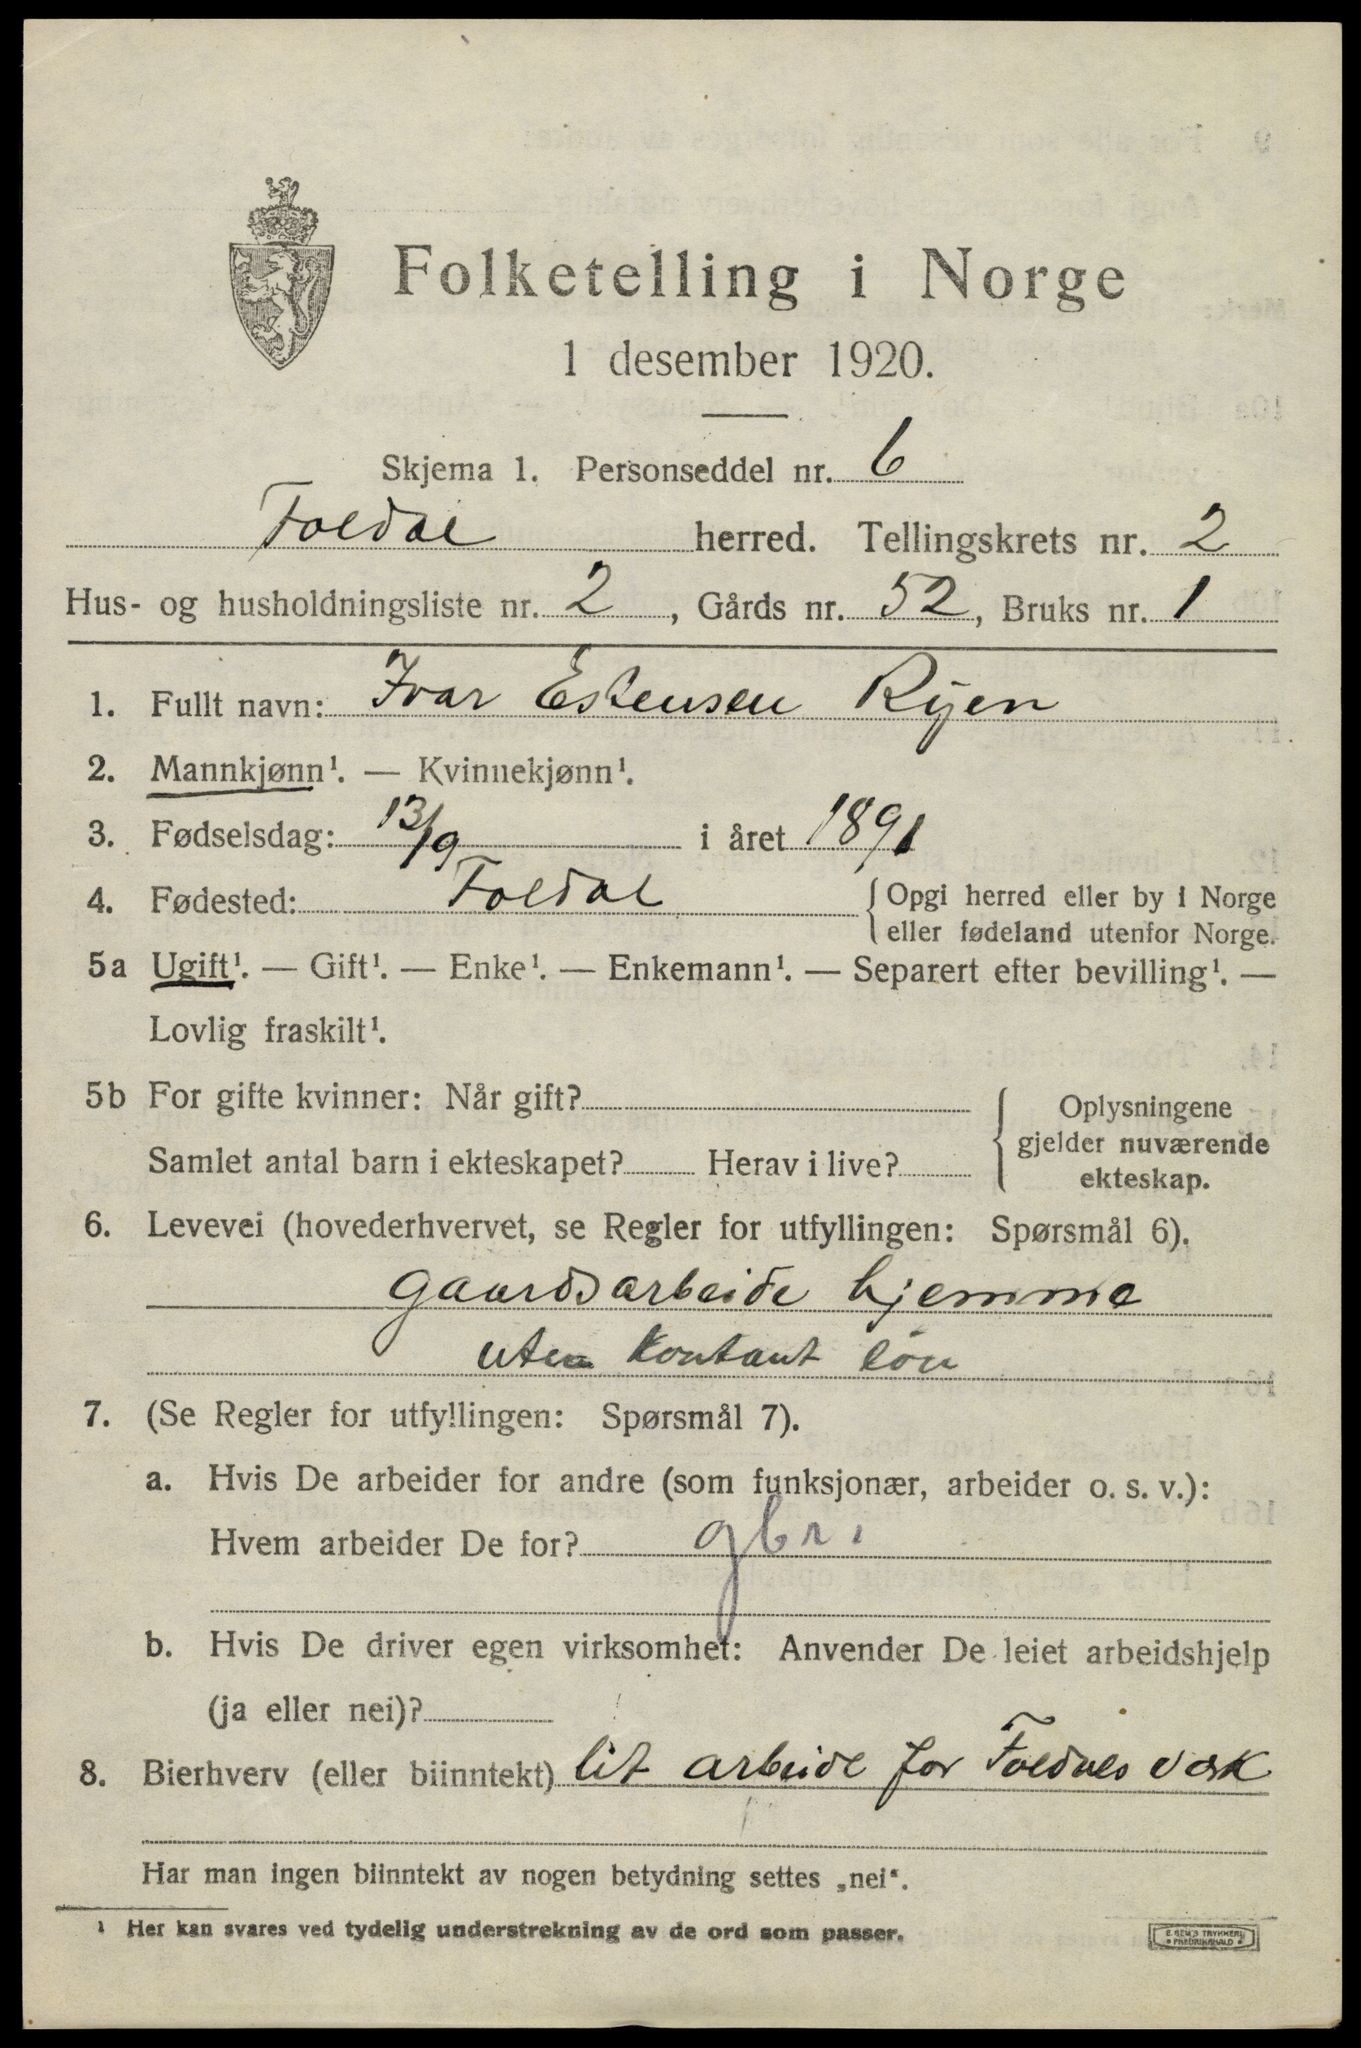 Folketelling i Norge
1 desember 1920.
Skjema 1. Personseddel nr. 6
Foldal herred. Tellingskrets nr. 2
Hus- og husholdningsliste nr. 2, Gårds nr. 52, Bruks nr. 1
1. Fullt navn: Ivar Estensen Ryen
2. Mannkjønn¹. — Kvinnekjønn¹.
3. Fødselsdag: 13/9 i året 1891
4. Fødested: Foldal { Opgi herred eller by i Norge
eller fødeland utenfor Norge.
5a Ugift¹. — Gift¹. — Enke¹. — Enkemann¹. — Separert efter bevilling¹. —
Lovlig fraskilt¹.
5b For gifte kvinner: Når gift?
Samlet antal barn i ekteskapet? Herav i live?
Oplysningene
gjelder nuværende
ekteskap.
6. Levevei (hovederhvervet, se Regler for utfyllingen: Spørsmål 6).
Gaardsarbeide hjemme
uten kontant løn
7. (Se Regler for utfyllingen: Spørsmål 7).
a. Hvis De arbeider for andre (som funksjonær, arbeider o. s. v.):
Hvem arbeider De for? gbr.
b. Hvis De driver egen virksomhet: Anvender De leiet arbeidshjelp
(ja eller nei)?
8. Bierhverv (eller biinntekt) lit arbeide for Foldals verk
Har man ingen biinntekt av nogen betydning settes „nei“.
¹ Her kan svares ved tydelig understrekning av de ord som passer.
E. SEM'S TRYKKERI
FREDRIKSHALD